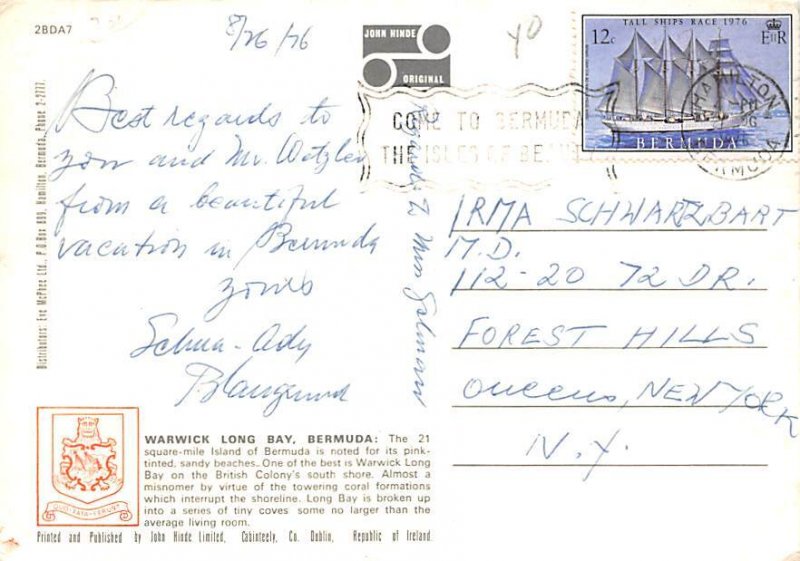 2BDA7
8/26/76
40
JOHN HINDE
ORIGINAL
TALL SHIPS RACE 1976
12c
EIIR
BERMUDA
HAMILTON
PM
BERMUDA
COME TO BERMUDA
THE ISLES OF BEAU
Best regards to
you and Mr. Wetzler
from a beautiful
vacation in Bermuda
yours
Regards to Miss Galman
IRMA SCHWARTZBART
M.D.
112-20 72 DR.
FOREST HILLS
Queens, NEW YORK
N.Y.
Distributors: Eve McPhee Ltd., P.O.Box 809, Hamilton, Bermuda, Phone 2-2777.
QUO FATA FERUNT
WARWICK LONG BAY, BERMUDA: The 21
square-mile Island of Bermuda is noted for its pink-
tinted, sandy beaches. One of the best is Warwick Long
Bay on the British Colony's south shore. Almost a
misnomer by virtue of the towering coral formations
which interrupt the shoreline. Long Bay is broken up
into a series of tiny coves some no larger than the
average living room.
Printed and Published by John Hinde Limited, Cabinteely, Co. Dublin, Republic of Ireland.